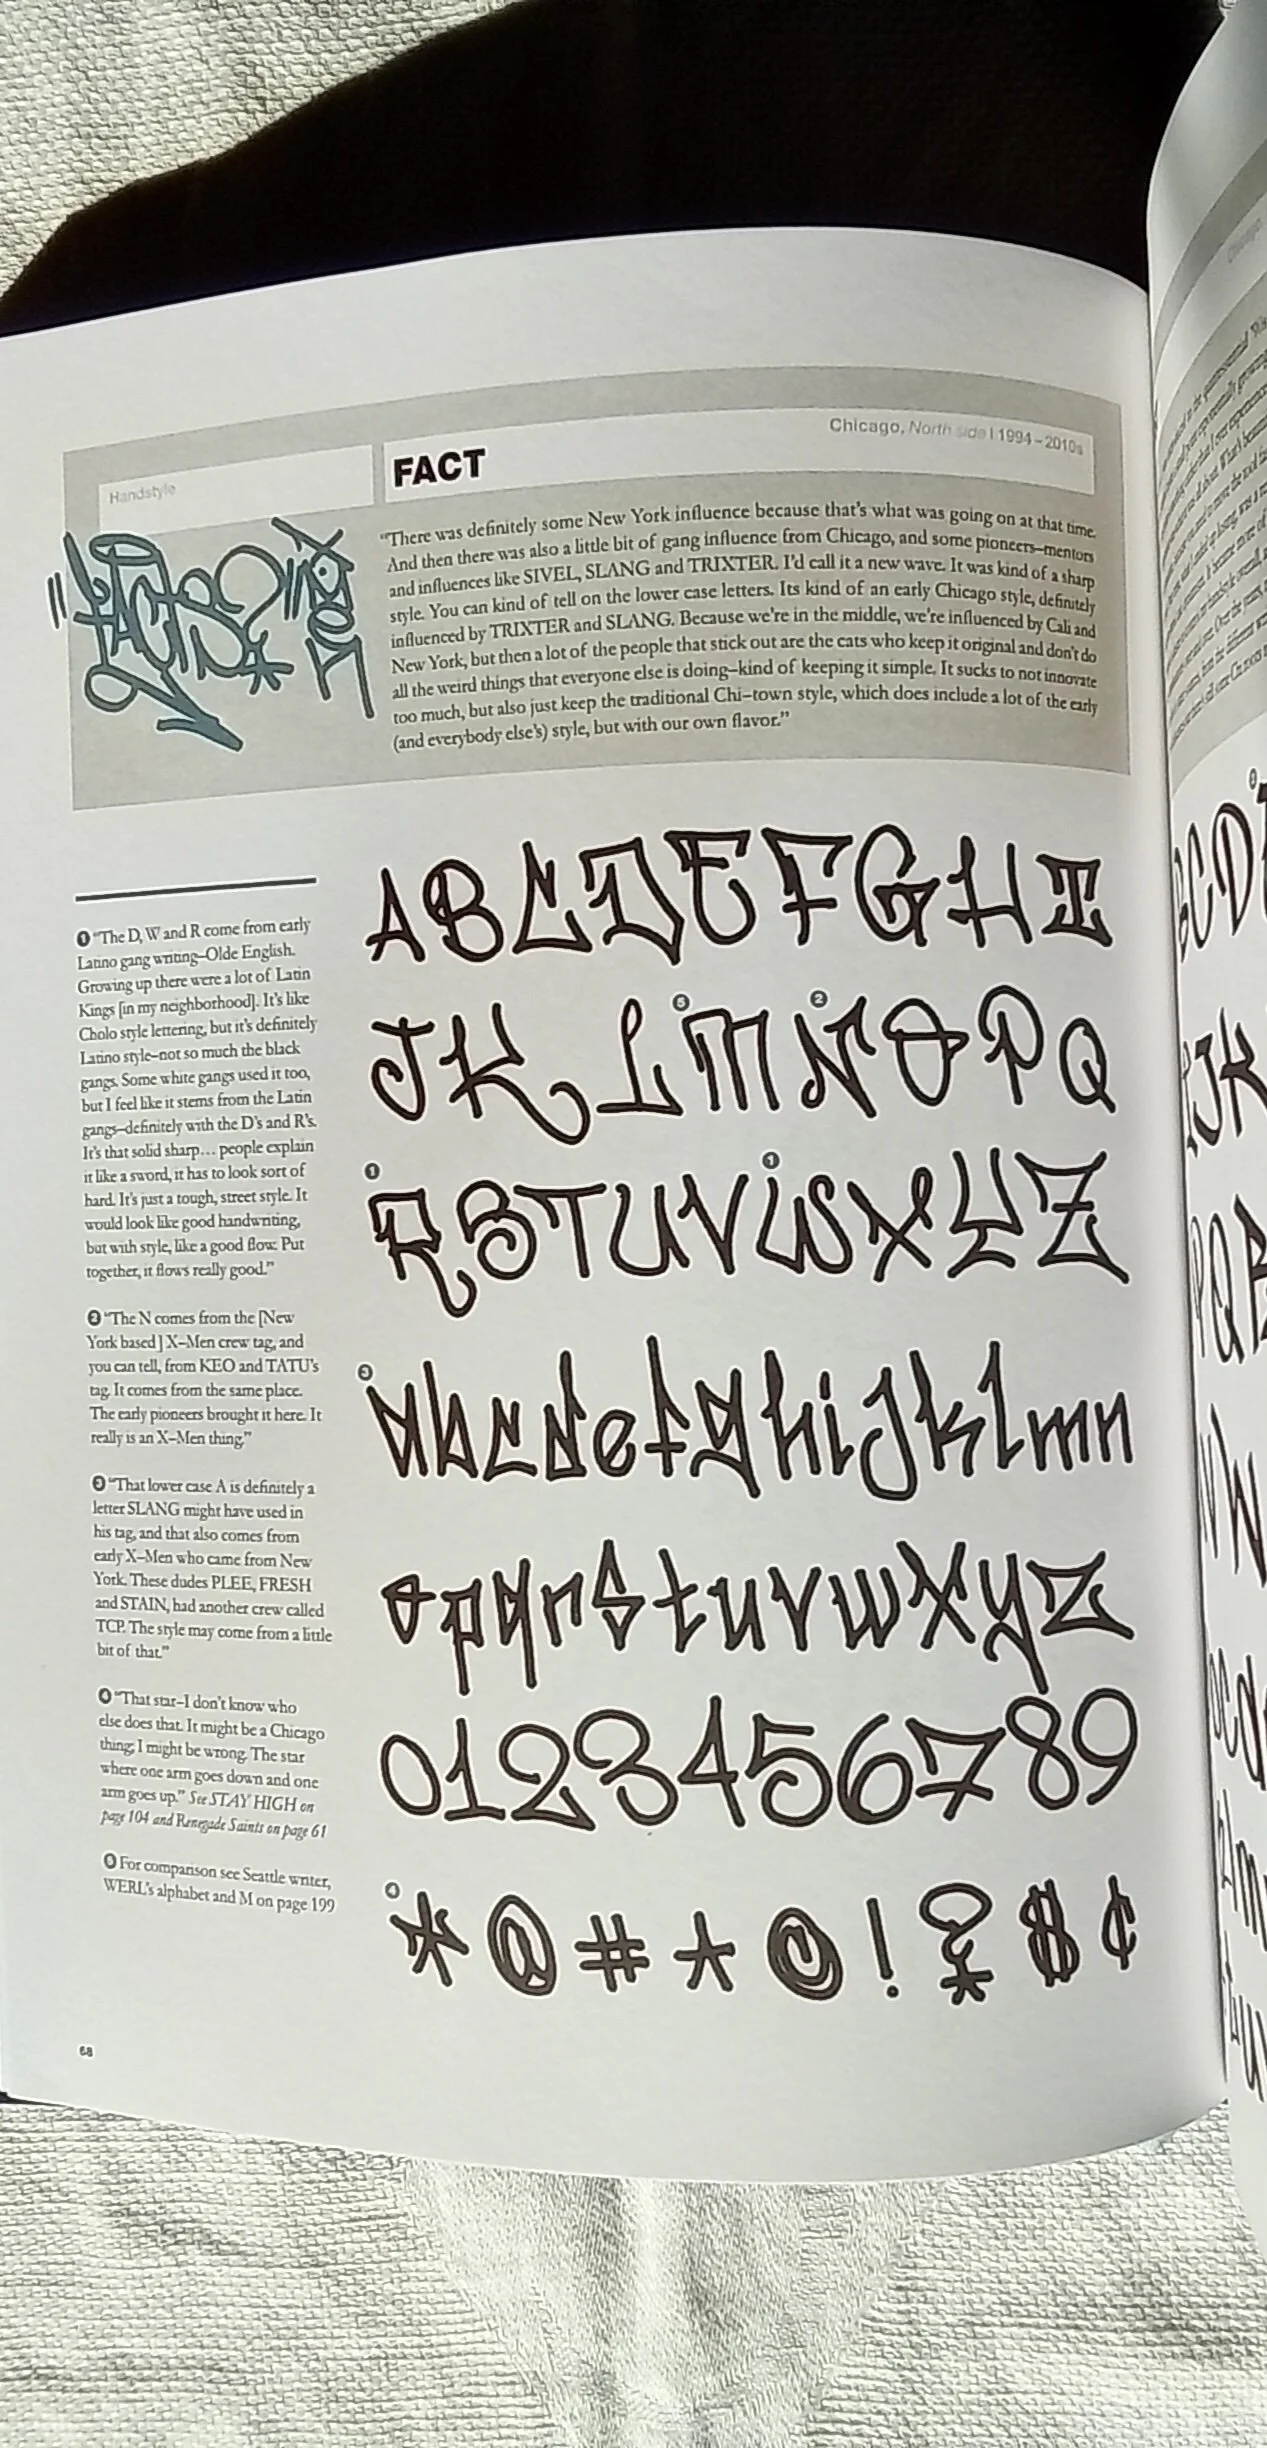 Handstyle
FACT
Chicago, North side | 1994–2010s
“There was definitely some New York influence because that’s what was going on at that time.
And then there was also a little bit of gang influence from Chicago, and some pioneers–mentors
and influences like SIVEL, SLANG and TRIXTER. I’d call it a new wave. It was kind of a sharp
style. You can kind of tell on the lower case letters. Its kind of an early Chicago style, definitely
influenced by TRIXTER and SLANG. Because we’re in the middle, we’re influenced by Cali and
New York, but then a lot of the people that stick out are the cats who keep it original and don’t do
all the weird things that everyone else is doing–kind of keeping it simple. It sucks to not innovate
too much, but also just keep the traditional Chi–town style, which does include a lot of the early
(and everybody else’s) style, but with our own flavor.”
❶ “The D, W and R come from early
Latino gang writing–Olde English.
Growing up there were a lot of Latin
Kings [in my neighborhood]. It’s like
Cholo style lettering, but it’s definitely
Latino style–not so much the black
gangs. Some white gangs used it too,
but I feel like it stems from the Latin
gangs–definitely with the D’s and R’s.
It’s that solid sharp… people explain
it like a sword, it has to look sort of
hard. It’s just a tough, street style. It
would look like good handwriting,
but with style, like a good flow. Put
together, it flows really good.”
❷ “The N comes from the [New
York based] X–Men crew tag, and
you can tell, from KEO and TATU’s
tag. It comes from the same place.
The early pioneers brought it here. It
really is an X–Men thing.”
❸ “That lower case A is definitely a
letter SLANG might have used in
his tag, and that also comes from
early X–Men who came from New
York. These dudes PLEE, FRESH
and STAIN, had another crew called
TCP. The style may come from a little
bit of that.”
❹ “That star–I don’t know who
else does that. It might be a Chicago
thing; I might be wrong. The star
where one arm goes down and one
arm goes up.” See STAY HIGH on
page 104 and Renegade Saints on page 61
❺ For comparison see Seattle writer,
WERL’s alphabet and M on page 199
ABCDEFGHI
JKL❺M❷NOPQ
❶RSTUV❶WXYZ
❸abcdefghijklmn
opqrstuvwxyz
0123456789
❹*@#*@!?$¢
68